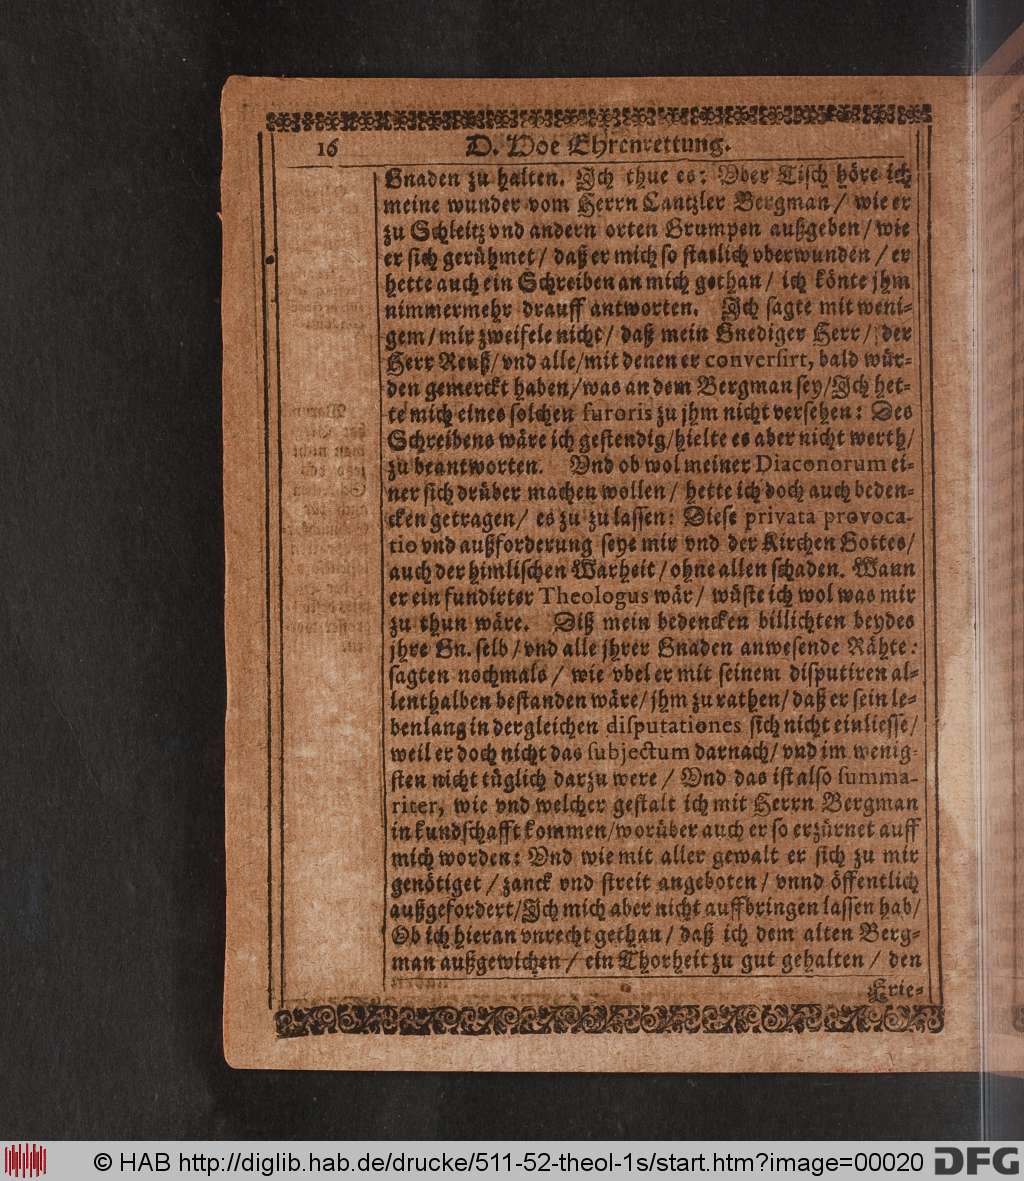 16 D. Hoe Ehrenrettung.
Gnaden zu halten. Ich thue es: Vber Tisch höre ich
meine wunder vom Herrn Cantzler Bergman / wie er
zu Schleitz vnd andern orten Grumpen außgeben / wie
er sich gerühmet / daß er mich so statlich vberwunden / er
hette auch ein Schreiben an mich gethan / ich könte jhm
nimmermehr drauff antworten. Ich sagte mit weni-
gem / mir zweifele nicht / daß mein Gnediger Herr / der
Herr Reuß / vnd alle / mit denen er conversirt, bald wür-
den gemerckt haben / was an dem Bergman sey / Ich het-
te mich eines solchen furoris zu jhm nicht versehen: Des
Schreibens wäre ich gestendig / hielte es aber nicht werth /
zu beantworten. Vnd ob wol meiner Diaconorum ei-
ner sich drüber machen wollen / hette ich doch auch beden-
cken getragen / es zu zulassen: Diese privata provoca-
tio vnd außforderung seye mir vnd der Kirchen Gottes /
auch der himlischen Warheit / ohne allen schaden. Wann
er ein fundirter Theologus wär / wüste ich wol was mir
zu thun wäre. Diß mein bedencken billichten beydes
jhre Gn. selb / vnd alle jhrer Gnaden anwesende Rähte:
sagten nochmals / wie vbel er mit seinem disputiren al-
lenthalben bestanden wäre / jhm zu rathen / daß er sein le-
benlang in dergleichen disputationes sich nicht einliesse /
weil er doch nicht das subjectum darnach / vnd im wenig-
sten nicht tüglich darzu were / Vnd das ist also summa-
riter, wie vnd welcher gestalt ich mit Herrn Bergman
in kundschafft kommen / worüber auch er so erzürnet auff
mich worden: Vnd wie mit aller gewalt er sich zu mir
genötiget / zanck vnd streit angeboten / vnnd öffentlich
außgefordert / Ich mich aber nicht auffbringen lassen hab /
Ob ich hieran vnrecht gethan / daß ich dem alten Berg-
man außgewichen / ein Thorheit zu gut gehalten / den
Erie-
© HAB http://diglib.hab.de/drucke/511-52-theol-1s/start.htm?image=00020 DFG